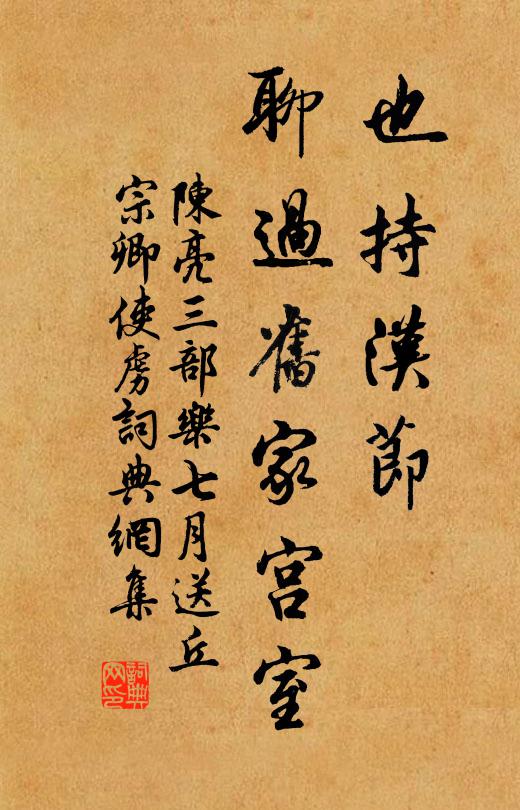 也持漢節
聊過舊家宮室
陳亮三部樂七月送丘
宗卿使虜詞典網集
詞典网印